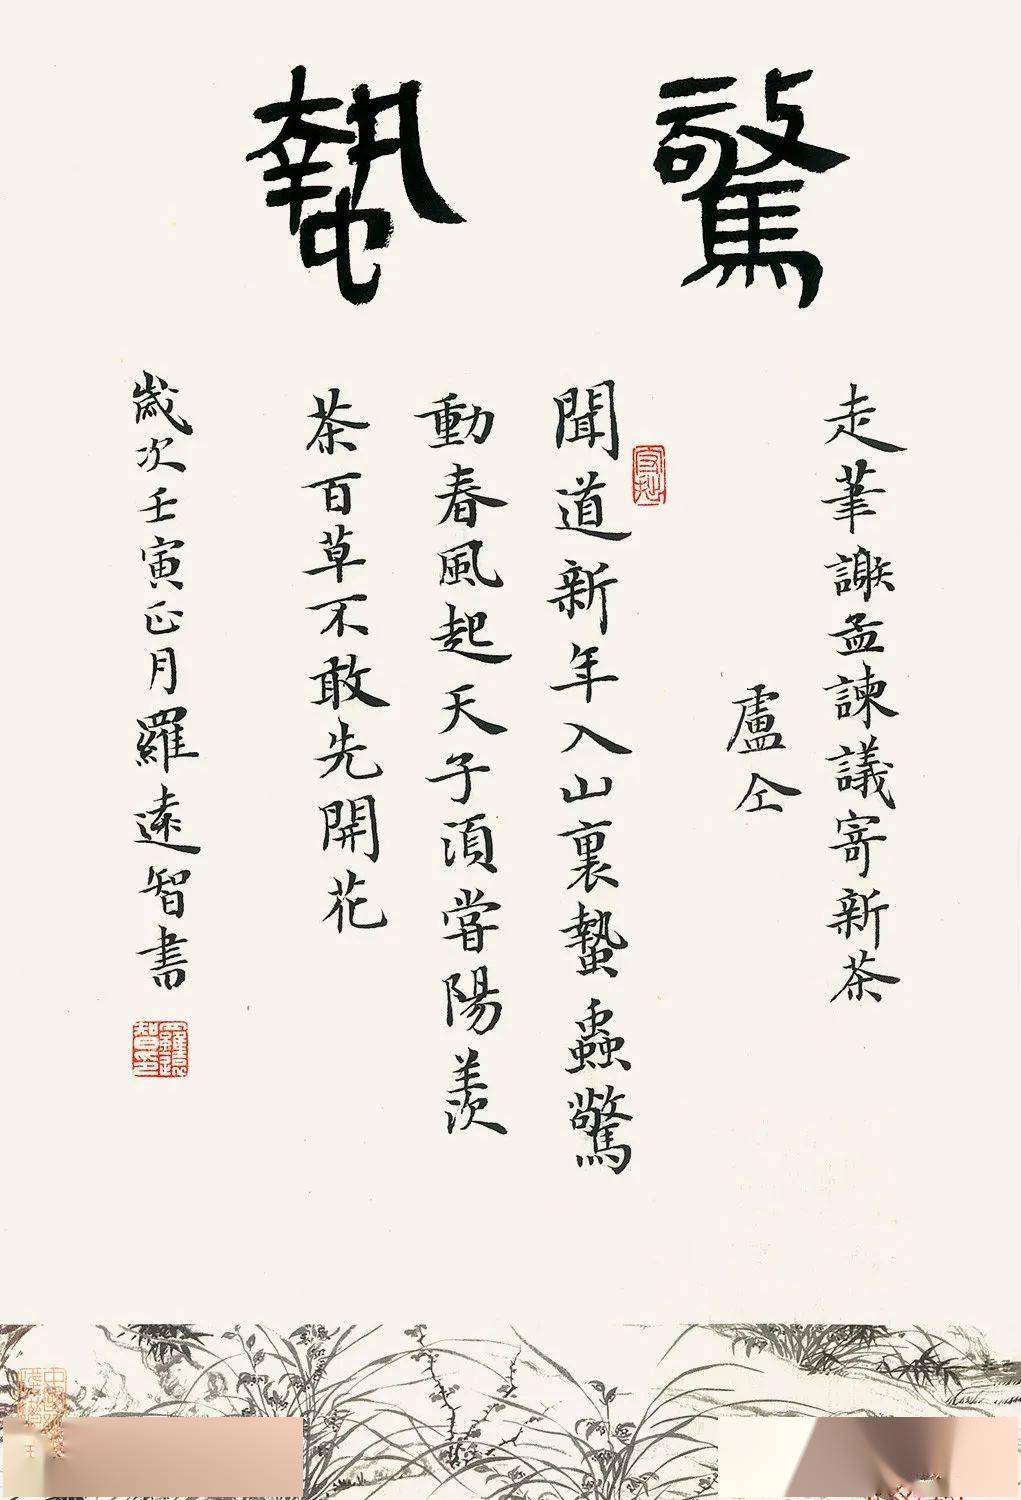 驚蟄
走筆謝孟諫議寄新茶
盧仝
聞道新年入山裏蟄蟲驚
動春風起天子須嘗陽羨
茶百草不敢先開花
歲次壬寅正月羅遠智書
羅遠智印